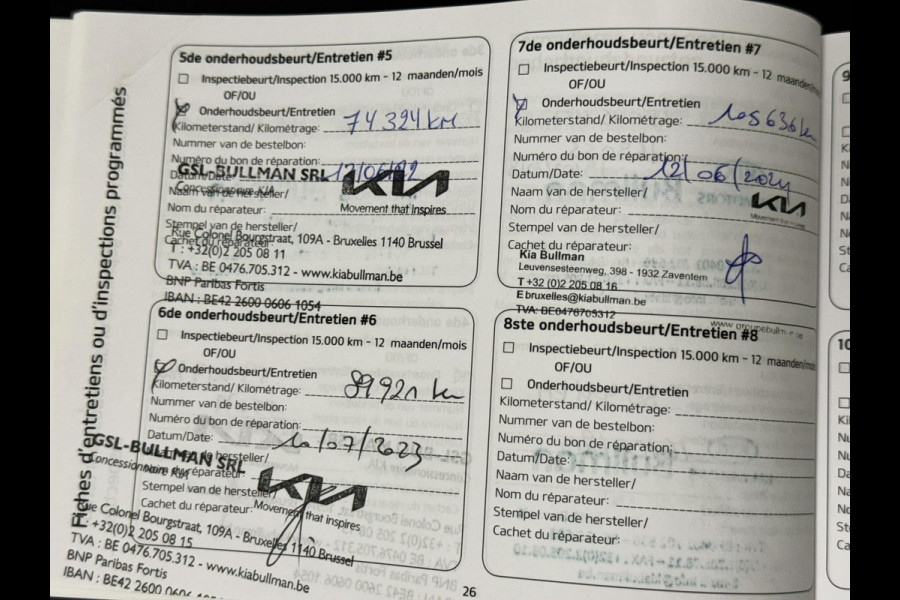 Fiches d'entretiens ou d'inspections programmés
5de onderhoudsbeurt/Entretien #5
Inspectiebeurt/Inspection 15.000 km - 12 maanden/mois
OF/OU
Onderhoudsbeurt/Entretien
Kilometerstand/ Kilométrage: 74324 KM
Nummer van de bestelbon:
Numéro du bon de réparation:
Datum/Date: 17/06/22
GSL-BULLMAN SRL
Concessionnaire KIA
KIA
Movement that inspires
Naam van de hersteller/
Nom du réparateur:
Stempel van de hersteller/
Cachet du réparateur:
Rue Colonel Bourgstraat, 109A - Bruxelles 1140 Brussel
T : +32(0)2 205 08 11
TVA : BE 0476.705.312 - www.kiabullman.be
BNP Paribas Fortis
IBAN : BE42 2600 0606 1054
6de onderhoudsbeurt/Entretien #6
Inspectiebeurt/Inspection 15.000 km - 12 maanden/mois
OF/OU
Onderhoudsbeurt/Entretien
Kilometerstand/ Kilométrage: 89921 km
Nummer van de bestelbon:
Numéro du bon de réparation:
Datum/Date: 10/07/2023
Naam van de hersteller/
Nom du réparateur:
GSL-BULLMAN SRL
Concessionnaire KIA
KIA
Movement that inspires
Stempel van de hersteller/
Cachet du réparateur:
Rue Colonel Bourgstraat, 109A - Bruxelles 1140 Brussel
T : +32(0)2 205 08 15
TVA : BE 0476.705.312 - www.kiabullman.be
BNP Paribas Fortis
IBAN : BE42 2600
26
7de onderhoudsbeurt/Entretien #7
Inspectiebeurt/Inspection 15.000 km - 12 maanden/mois
OF/OU
Onderhoudsbeurt/Entretien
Kilometerstand/ Kilométrage: 105636 km
Nummer van de bestelbon:
Numéro du bon de réparation:
Datum/Date: 12/06/2024
Naam van de hersteller/
Nom du réparateur:
KIA
Movement that inspires
Stempel van de hersteller/
Cachet du réparateur:
Kia Bullman
Leuvensesteenweg, 398 - 1932 Zaventem
T +32 (0)2 205 08 16
E bruxelles@kiabullman.be
TVA: BE0476705312
8ste onderhoudsbeurt/Entretien #8
Inspectiebeurt/Inspection 15.000 km - 12 maanden/mois
OF/OU
Onderhoudsbeurt/Entretien
Kilometerstand/ Kilométrage:
Nummer van de bestelbon:
Numéro du bon de réparation:
Datum/Date:
Naam van de hersteller/
Nom du réparateur:
Stempel van de hersteller/
Cachet du réparateur: